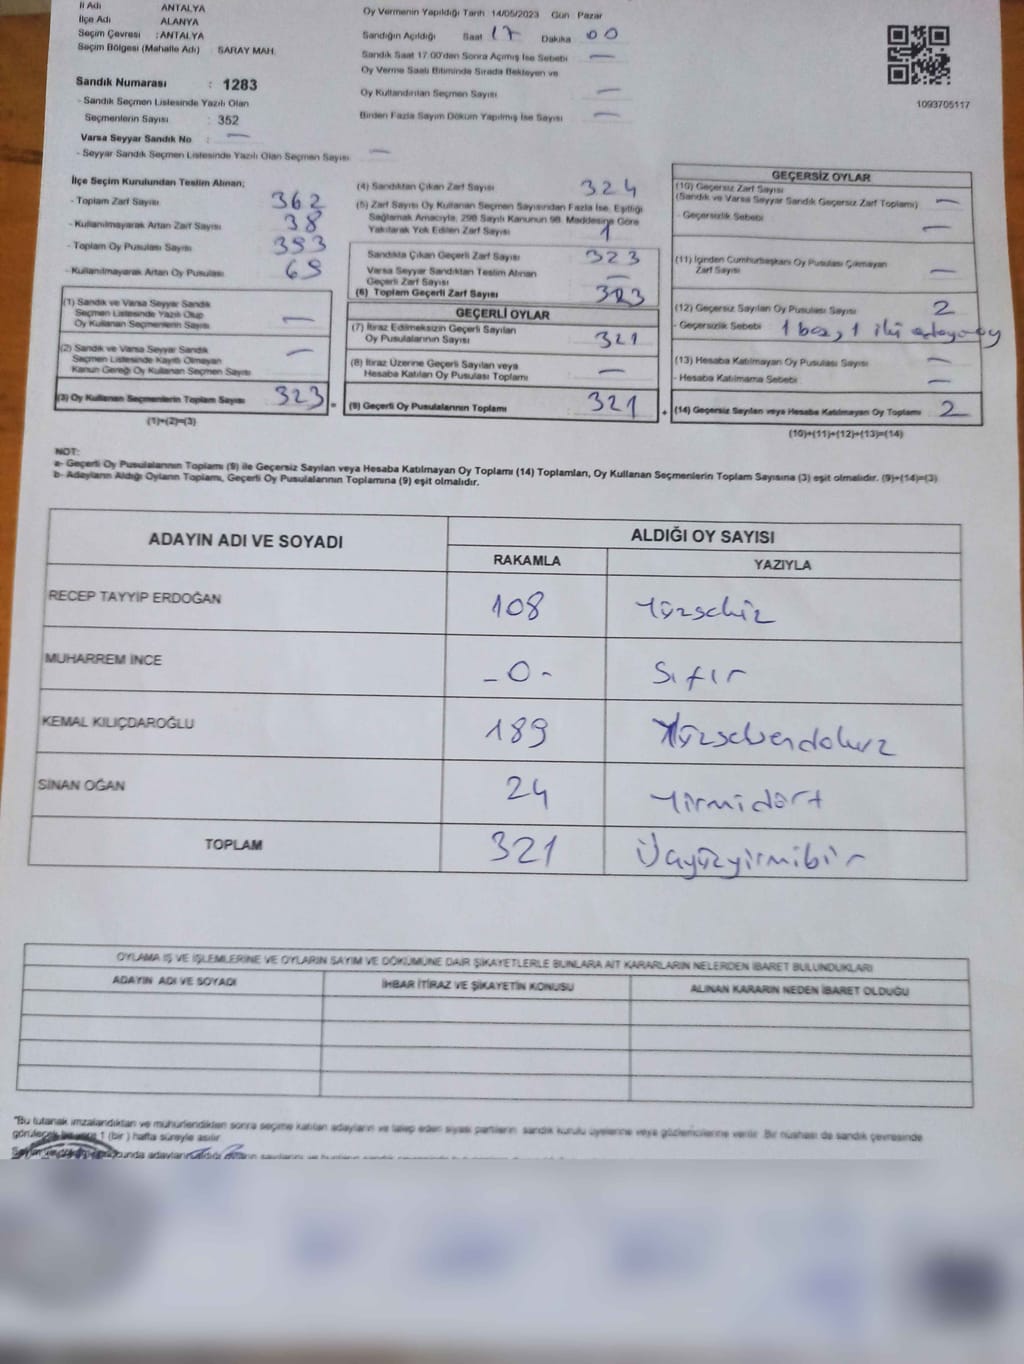 İl Adı ANTALYA
İlçe Adı ALANYA
Seçim Çevresi : ANTALYA
Seçim Bölgesi (Mahalle Adı) : SARAY MAH.
Oy Vermenin Yapıldığı Tarih 14/05/2023 Gün : Pazar
Sandığın Açıldığı Saat 17 Dakika 00
Sandık Saat 17:00'den Sonra Açımış İse Sebebi —
Oy Verme Saati Bitiminde Sırada Bekleyen ve
Oy Kullandırılan Seçmen Sayısı —
Birden Fazla Sayım Döküm Yapılmış İse Sayısı —
1093705117
Sandık Numarası : 1283
- Sandık Seçmen Listesinde Yazılı Olan
Seçmenlerin Sayısı : 352
Varsa Seyyar Sandık No : —
- Seyyar Sandık Seçmen Listesinde Yazılı Olan Seçmen Sayısı —
İlçe Seçim Kurulundan Teslim Alınan;
- Toplam Zarf Sayısı 362
- Kullanılmayarak Artan Zarf Sayısı 38
- Toplam Oy Pusulası Sayısı 393
- Kullanılmayarak Artan Oy Pusulası 69
(1) Sandık ve Varsa Seyyar Sandık
Seçmen Listesinde Yazılı Olup
Oy Kullanan Seçmenlerin Sayısı —
(2) Sandık ve Varsa Seyyar Sandık
Seçmen Listesinde Kayıtlı Olmayan
Kanun Gereği Oy Kullanan Seçmen Sayısı —
(3) Oy Kullanan Seçmenlerin Toplam Sayısı 323 =
(1)+(2)=(3)
(4) Sandıktan Çıkan Zarf Sayısı 324
(5) Zarf Sayısı Oy Kullanan Seçmen Sayısından Fazla İse, Eşitliği
Sağlamak Amacıyla, 298 Sayılı Kanunun 98. Maddesine Göre
Yakılarak Yok Edilen Zarf Sayısı 1
Sandıkta Çıkan Geçerli Zarf Sayısı 323
Varsa Seyyar Sandıktan Teslim Alınan
Geçerli Zarf Sayısı —
(6) Toplam Geçerli Zarf Sayısı 323
GEÇERLİ OYLAR
(7) İtiraz Edilmeksizin Geçerli Sayılan
Oy Pusulalarının Sayısı 321
(8) İtiraz Üzerine Geçerli Sayılan veya
Hesaba Katılan Oy Pusulası Toplamı —
(9) Geçerli Oy Pusulalarının Toplamı 321 +
GEÇERSİZ OYLAR
(10) Geçersiz Zarf Sayısı
(Sandık ve Varsa Seyyar Sandık Geçersiz Zarf Toplamı) —
- Geçersizlik Sebebi —
(11) İçinden Cumhurbaşkanı Oy Pusulası Çıkmayan
Zarf Sayısı —
(12) Geçersiz Sayılan Oy Pusulası Sayısı 2
- Geçersizlik Sebebi 1 boş, 1 iki
(13) Hesaba Katılmayan Oy Pusulası Sayısı —
- Hesaba Katılmama Sebebi —
(14) Geçersiz Sayılan veya Hesaba Katılmayan Oy Toplamı 2
(10)+(11)+(12)+(13)=(14)
NOT:
a- Geçerli Oy Pusulalarının Toplamı (9) ile Geçersiz Sayılan veya Hesaba Katılmayan Oy Toplamı (14) Toplamları, Oy Kullanan Seçmenlerin Toplam Sayısına (3) eşit olmalıdır. (9)+(14)=(3)
b- Adayların Aldığı Oyların Toplamı, Geçerli Oy Pusulalarının Toplamına (9) eşit olmalıdır.
ADAYIN ADI VE SOYADI
ALDIĞI OY SAYISI
RAKAMLA YAZIYLA
RECEP TAYYİP ERDOĞAN 108 Yüzsekiz
MUHARREM İNCE -0- Sıfır
KEMAL KILIÇDAROĞLU 189 Yüzseksendokuz
SİNAN OĞAN 24 Yirmidört
TOPLAM 321 Üçyüzyirmibir
OYLAMA İŞ VE İŞLEMLERİNE VE OYLARIN SAYIM VE DÖKÜMÜNE DAİR ŞİKAYETLERLE BUNLARA AİT KARARLARIN NELERDEN İBARET BULUNDUKLARI
ADAYIN ADI VE SOYADI İHBAR İTİRAZ VE ŞİKAYETİN KONUSU ALINAN KARARIN NEDEN İBARET OLDUĞU
"Bu tutanak imzalandıktan ve mühürlendikten sonra seçime katılan adayların ve talep eden siyasi partilerin sandık kurulu üyelerine veya gözlemcilerine verilir. Bir nüshası da sandık çevresinde
1 (bir) hafta süreyle asılır.